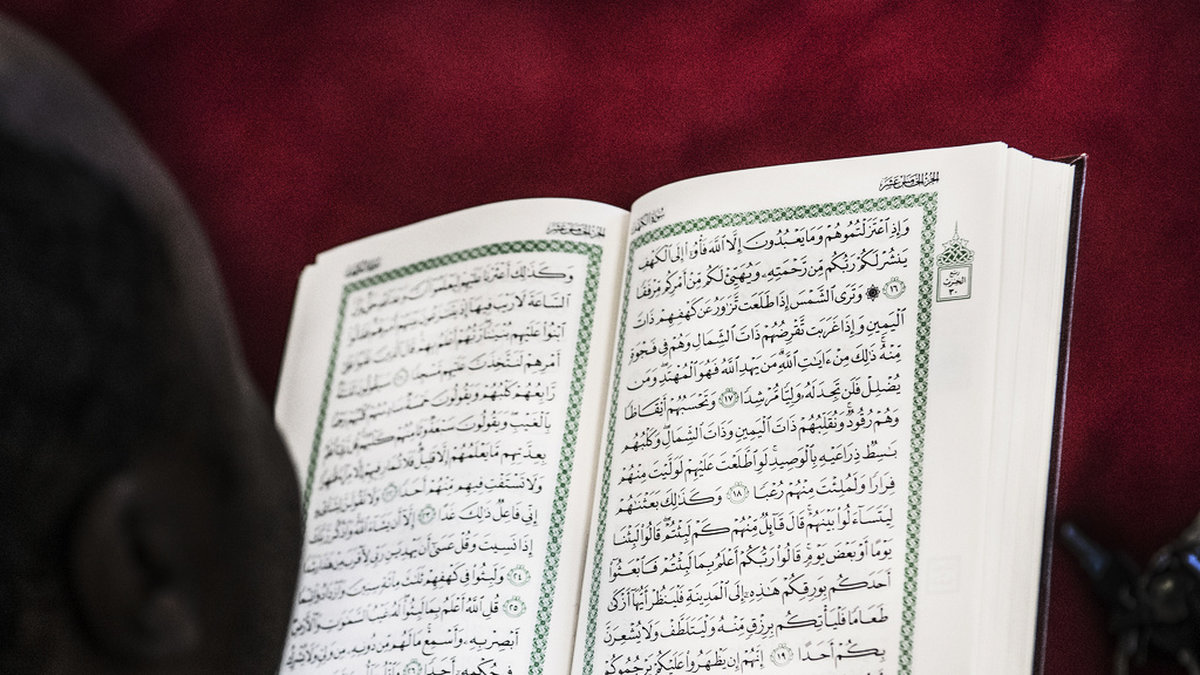 الجزء الخامس عشر
سورة الكهف
وَإِذِ ٱعْتَزَلْتُمُوهُمْ وَمَا يَعْبُدُونَ إِلَّا ٱللَّهَ فَأْوُۥٓا۟ إِلَى ٱلْكَهْفِ
يَنشُرْ لَكُمْ رَبُّكُم مِّن رَّحْمَتِهِۦ وَيُهَيِّئْ لَكُم مِّنْ أَمْرِكُم مِّرْفَقًا
١٦ ۞ وَتَرَى ٱلشَّمْسَ إِذَا طَلَعَت تَّزَٰوَرُ عَن كَهْفِهِمْ ذَاتَ
ٱلْيَمِينِ وَإِذَا غَرَبَت تَّقْرِضُهُمْ ذَاتَ ٱلشِّمَالِ وَهُمْ فِى فَجْوَةٍ
مِّنْهُ ۚ ذَٰلِكَ مِنْ ءَايَٰتِ ٱللَّهِ ۗ مَن يَهْدِ ٱللَّهُ فَهُوَ ٱلْمُهْتَدِ ۖ وَمَن
يُضْلِلْ فَلَن تَجِدَ لَهُۥ وَلِيًّا مُّرْشِدًا ١٧ وَتَحْسَبُهُمْ أَيْقَاظًا
وَهُمْ رُقُودٌ ۚ وَنُقَلِّبُهُمْ ذَاتَ ٱلْيَمِينِ وَذَاتَ ٱلشِّمَالِ ۖ وَكَلْبُهُم
بَٰسِطٌ ذِرَاعَيْهِ بِٱلْوَصِيدِ ۚ لَوِ ٱطَّلَعْتَ عَلَيْهِمْ لَوَلَّيْتَ مِنْهُمْ
فِرَارًا وَلَمُلِئْتَ مِنْهُمْ رُعْبًا ١٨ وَكَذَٰلِكَ بَعَثْنَٰهُمْ
لِيَتَسَآءَلُوا۟ بَيْنَهُمْ ۚ قَالَ قَآئِلٌ مِّنْهُمْ كَمْ لَبِثْتُمْ ۖ قَالُوا۟ لَبِثْنَا
يَوْمًا أَوْ بَعْضَ يَوْمٍ ۚ قَالُوا۟ رَبُّكُمْ أَعْلَمُ بِمَا لَبِثْتُمْ فَٱبْعَثُوٓا۟
أَحَدَكُم بِوَرِقِكُمْ هَٰذِهِۦٓ إِلَى ٱلْمَدِينَةِ فَلْيَنظُرْ أَيُّهَآ أَزْكَىٰ
طَعَامًا فَلْيَأْتِكُم بِرِزْقٍ مِّنْهُ وَلْيَتَلَطَّفْ وَلَا يُشْعِرَنَّ
بِكُمْ أَحَدًا ١٩ إِنَّهُمْ إِن يَظْهَرُوا۟ عَلَيْكُمْ يَرْجُمُوكُمْ
ربع
الحزب
٣٠
الجزء الخامس عشر
وَكَذَٰلِكَ أَعْثَرْنَا عَلَيْهِمْ لِيَعْلَمُوٓا۟
ٱلسَّاعَةَ لَا رَيْبَ فِيهَآ إِذْ يَتَنَٰزَعُونَ بَيْنَهُمْ أَمْرَهُمْ ۖ فَقَالُوا۟
ٱبْنُوا۟ عَلَيْهِم بُنْيَٰنًا ۖ رَّبُّهُمْ أَعْلَمُ بِهِمْ ۚ قَالَ ٱلَّذِينَ غَلَبُوا۟ عَلَىٰٓ
أَمْرِهِمْ لَنَتَّخِذَنَّ عَلَيْهِم مَّسْجِدًا ٢١ سَيَقُولُونَ ثَلَٰثَةٌ
رَّابِعُهُمْ كَلْبُهُمْ وَيَقُولُونَ خَمْسَةٌ سَادِسُهُمْ كَلْبُهُمْ رَجْمًۢا
بِٱلْغَيْبِ ۖ وَيَقُولُونَ سَبْعَةٌ وَثَامِنُهُمْ كَلْبُهُمْ ۚ قُل رَّبِّىٓ أَعْلَمُ
بِعِدَّتِهِم مَّا يَعْلَمُهُمْ إِلَّا قَلِيلٌ ۗ فَلَا تُمَارِ فِيهِمْ إِلَّا مِرَآءً ظَٰهِرًا
وَلَا تَسْتَفْتِ فِيهِم مِّنْهُمْ أَحَدًا ٢٢ وَلَا تَقُولَنَّ لِشَا۟ىْءٍ
إِنِّى فَاعِلٌ ذَٰلِكَ غَدًا ٢٣ إِلَّآ أَن يَشَآءَ ٱللَّهُ ۚ وَٱذْكُر رَّبَّكَ
إِذَا نَسِيتَ وَقُلْ عَسَىٰٓ أَن يَهْدِيَنِ رَبِّى لِأَقْرَبَ مِنْ هَٰذَا رَشَدًا
٢٤ وَلَبِثُوا۟ فِى كَهْفِهِمْ ثَلَٰثَ مِا۟ئَةٍ سِنِينَ وَٱزْدَادُوا۟ تِسْعًا
٢٥ قُلِ ٱللَّهُ أَعْلَمُ بِمَا لَبِثُوا۟ ۖ لَهُۥ غَيْبُ ٱلسَّمَٰوَٰتِ وَٱلْأَرْضِ ۖ
أَبْصِرْ بِهِۦ وَأَسْمِعْ ۚ مَا لَهُم مِّن دُونِهِۦ مِن وَلِىٍّ وَلَا يُشْرِكُ
فِى حُكْمِهِۦٓ أَحَدًا ٢٦